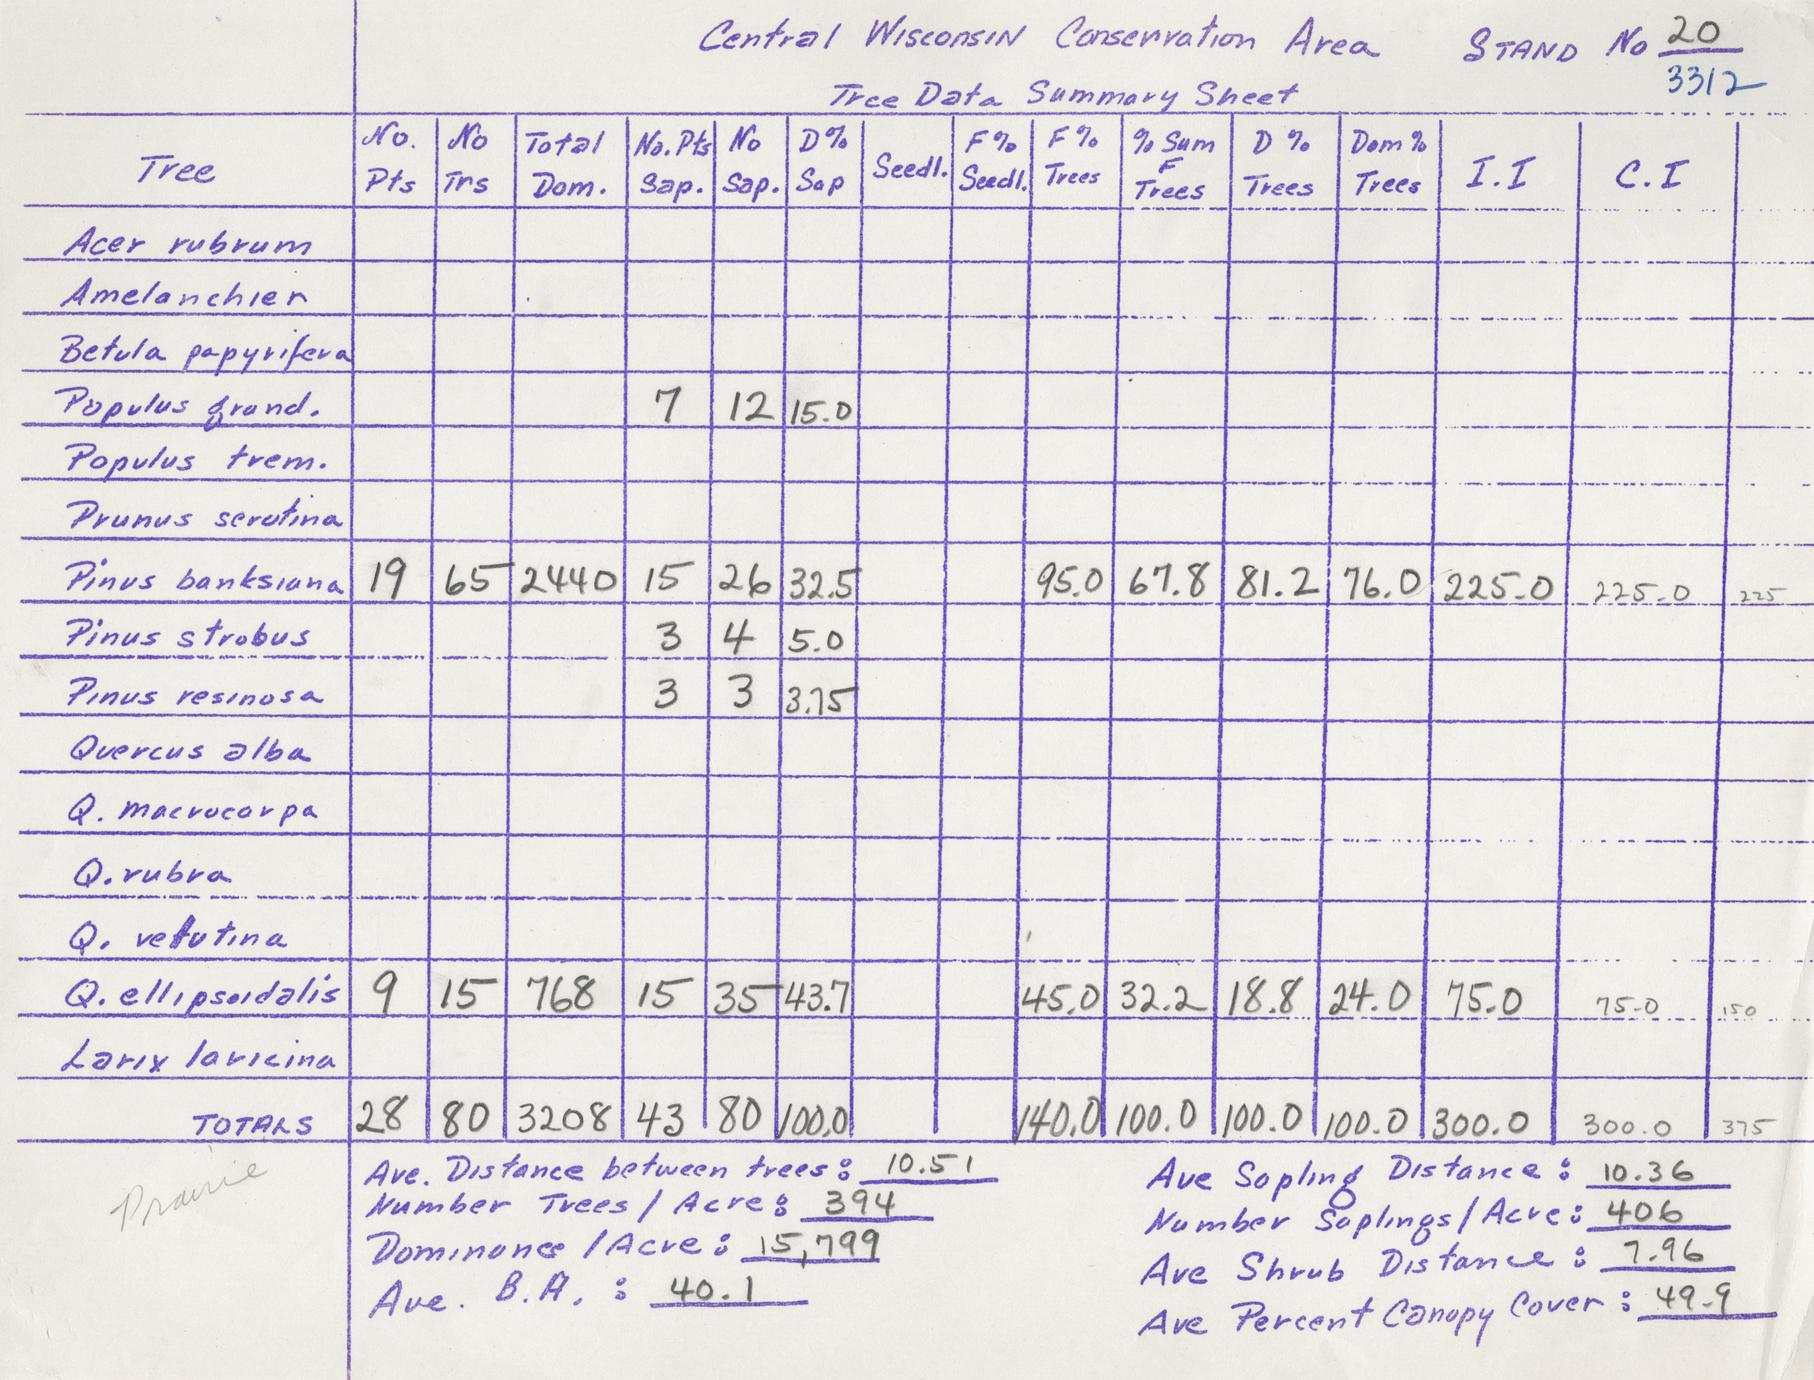 Central Wisconsin Conservation Area STAND No 20
3312
Tree Data Summary Sheet
Tree No. Pts No Trs Total Dom. No. Pts Sap. No Sap. D% Sap Seedl. F% Seedl. F% Trees % Sum F Trees D % Trees Dom % Trees I.I C.I
Acer rubrum
Amelanchier
Betula papyrifera
Populus grand. 7 12 15.0
Populus trem.
Prunus serotina
Pinus banksiana 19 65 2440 15 26 32.5 95.0 67.8 81.2 76.0 225.0 225.0 225
Pinus strobus 3 4 5.0
Pinus resinosa 3 3 3.75
Quercus alba
Q. macrocarpa
Q. rubra
Q. velutina
Q. ellipsoidalis 9 15 768 15 35 43.7 45.0 32.2 18.8 24.0 75.0 75.0 150
Larix laricina
TOTALS 28 80 3208 43 80 100.0 140.0 100.0 100.0 100.0 300.0 300.0 375
Prairie
Ave. Distance between trees: 10.51
Number Trees / Acre: 394
Dominance / Acre: 15,799
Ave. B.A. : 40.1
Ave Sapling Distance: 10.36
Number Saplings/Acre: 406
Ave Shrub Distance: 7.96
Ave Percent Canopy Cover: 49.9